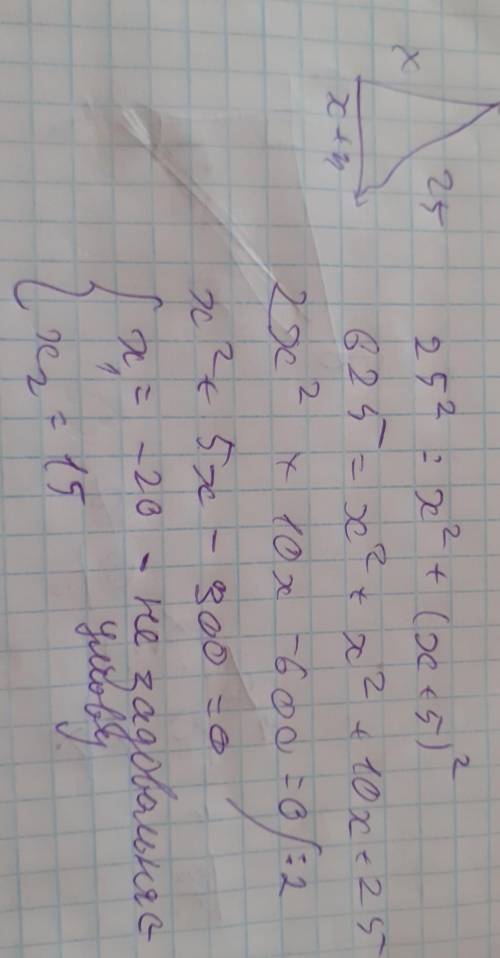 x
x+5
25
25² = x² + (x+5)²
625 = x² + x² + 10x + 25
2x² + 10x - 600 = 0 /:2
x² + 5x - 300 = 0
x₁ = -20 - не задовольняє
умову
x₂ = 15